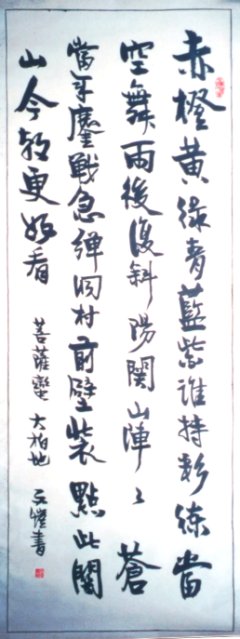 赤橙黃綠青藍紫誰持彩練當
空舞雨後復斜陽関山陣〻蒼
當年鏖戰急弹洞村前壁裝點此關
山今朝更好看
菩薩蠻 大柏地 文書